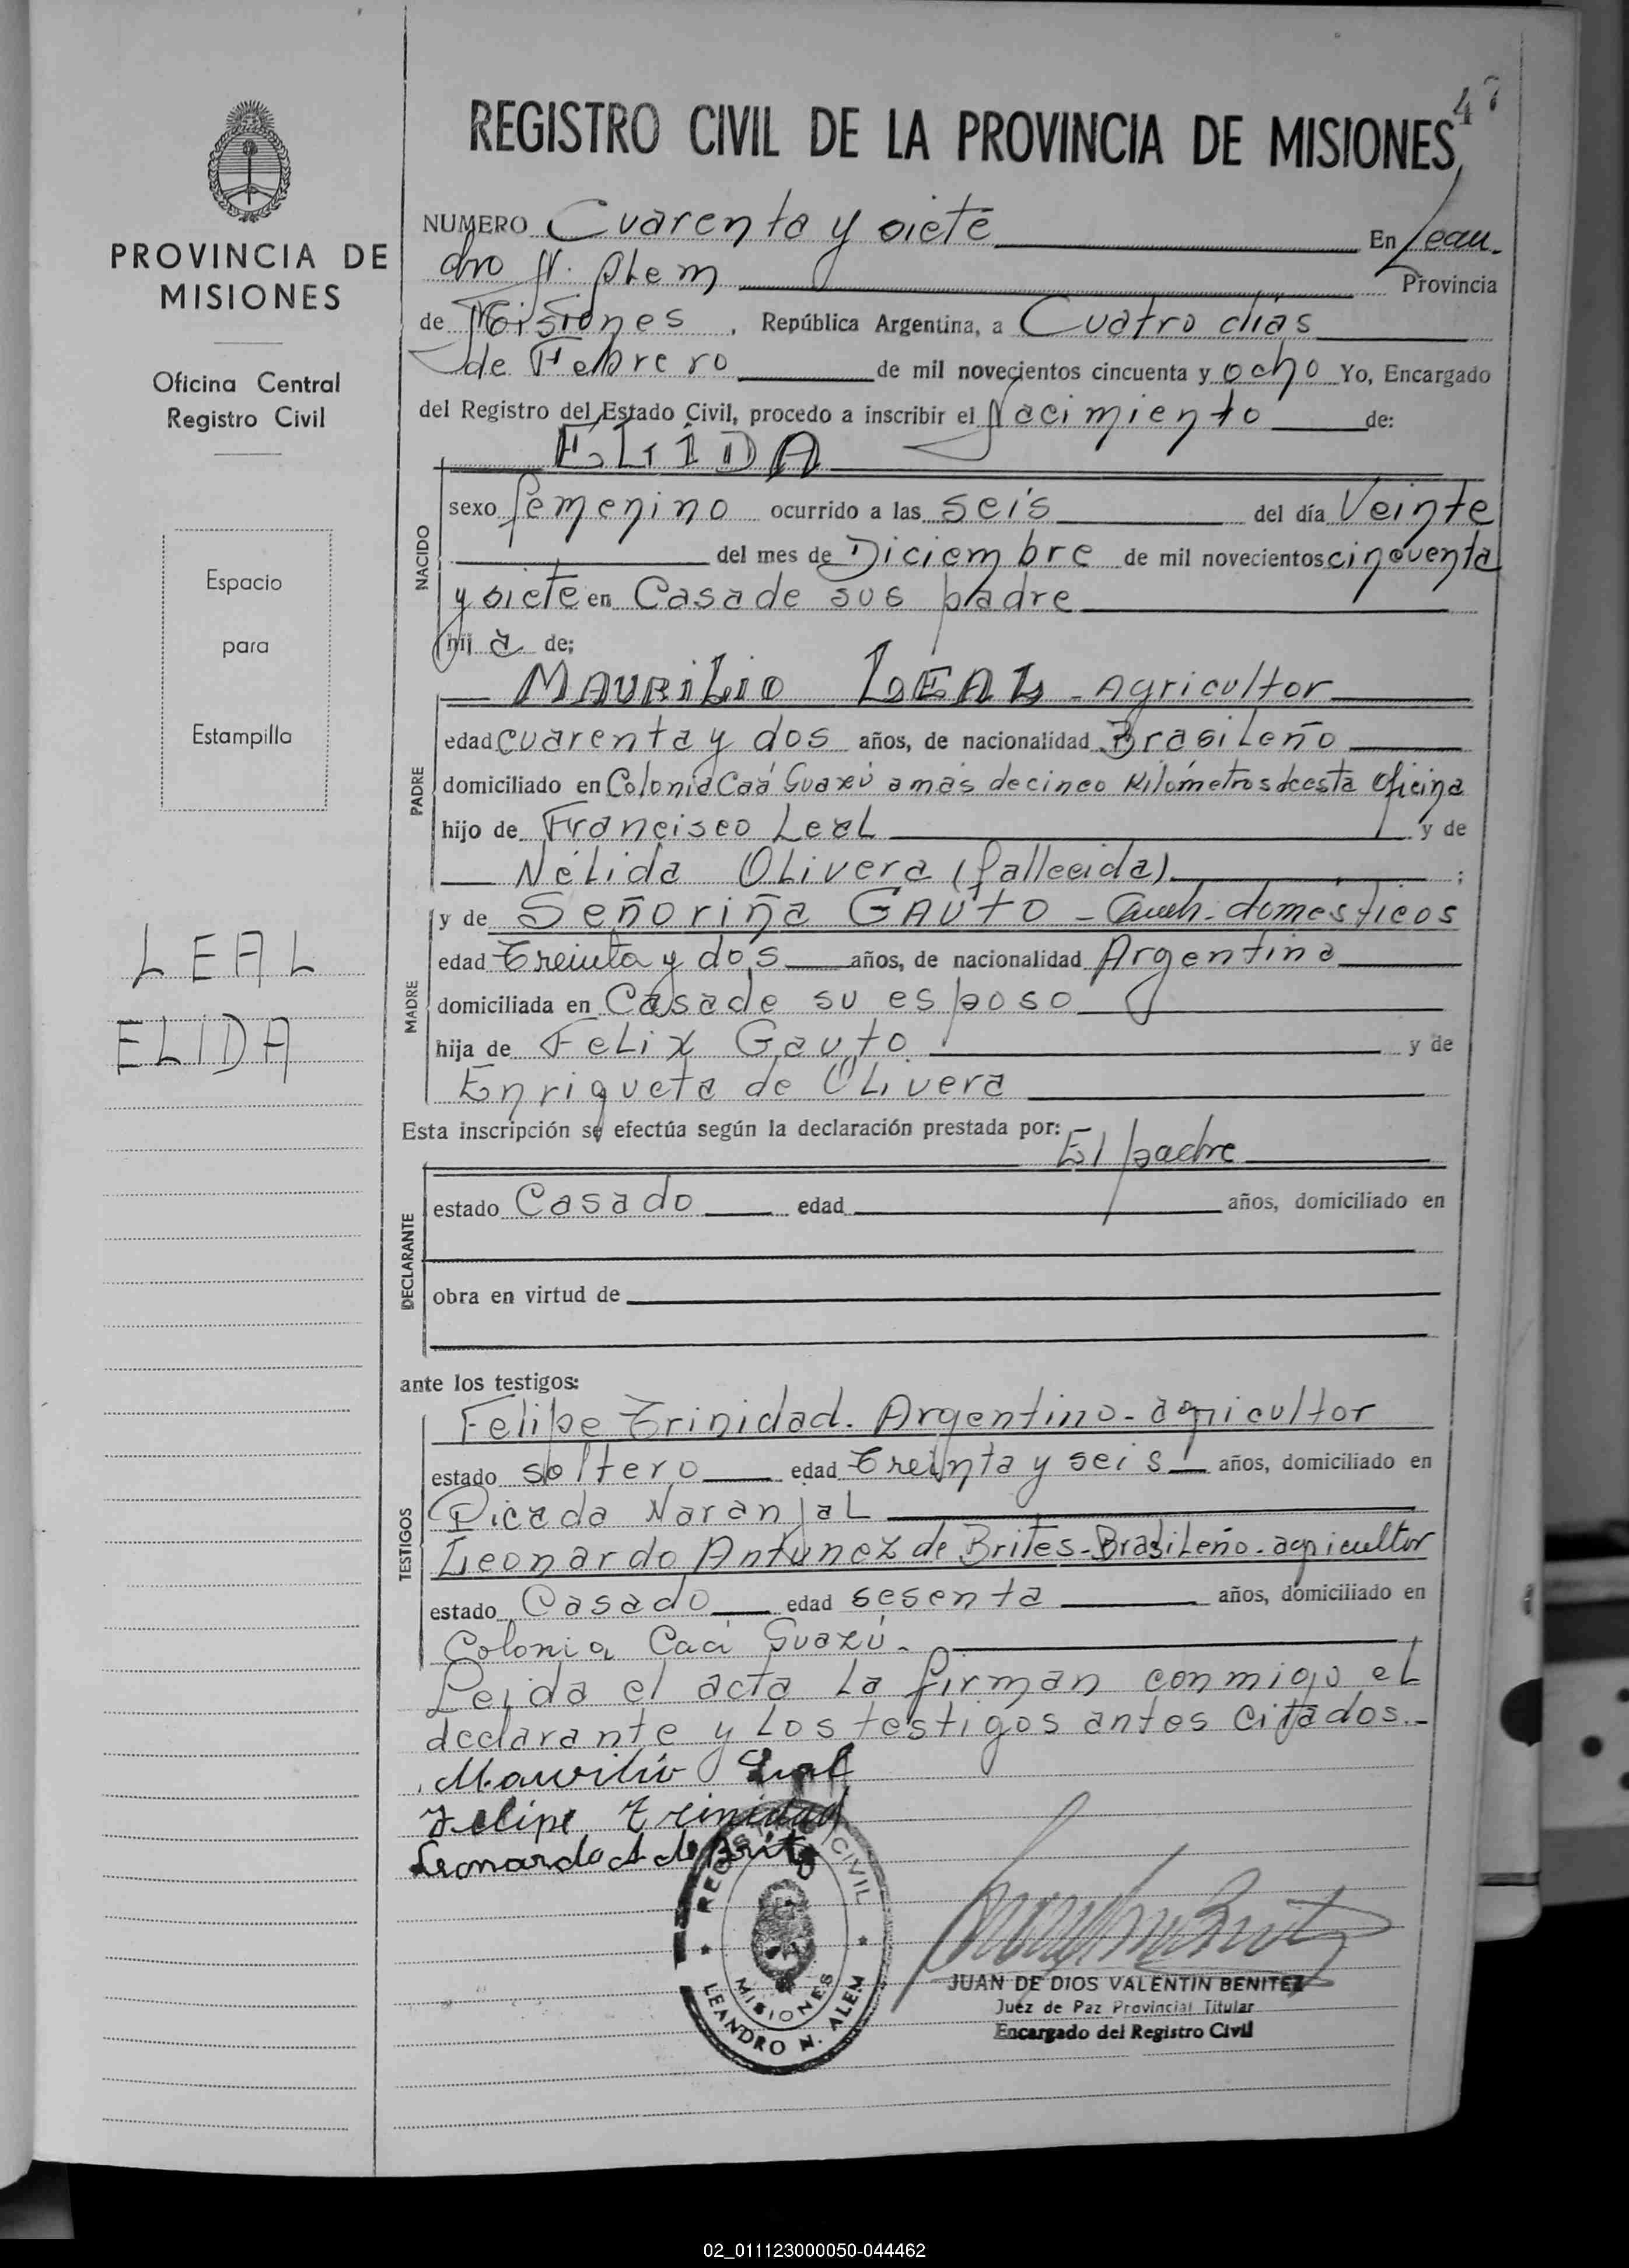 47
REGISTRO CIVIL DE LA PROVINCIA DE MISIONES
PROVINCIA DE
MISIONES
Oficina Central
Registro Civil
Espacio
para
Estampilla
LEAL
ELIDA
NUMERO Cuarenta y siete En Lean-
dro N. Alem Provincia
de Misiones, República Argentina, a Cuatro dias
de Febrero de mil novecientos cincuenta y ocho Yo, Encargado
del Registro del Estado Civil, procedo a inscribir el Nacimiento de:
ELIDA
NACIDO
sexo femenino ocurrido a las seis del día Veinte
del mes de Diciembre de mil novecientos cincuenta
y siete en Casa de sus padre
hija de;
PADRE
MAURILIO LEAL - Agricultor
edad cuarenta y dos años, de nacionalidad Brasileño
domiciliado en Colonia Caá Guazú a más de cinco Kilómetros de esta Oficina
hijo de Francisco Leal y de
Nélida Olivera (fallecida) ;
MADRE
y de Señoriña GAUTO - domesticos
edad Treinta y dos años, de nacionalidad Argentina
domiciliada en Casa de su esposo
hija de Felix Gauto y de
Enriqueta de Olivera
Esta inscripción se efectúa según la declaración prestada por:
El padre
DECLARANTE
estado Casado edad años, domiciliado en
obra en virtud de
ante los testigos:
TESTIGOS
Felipe Trinidad. Argentino - agricultor
estado soltero edad Treinta y seis años, domiciliado en
Picada Naranjal
Leonardo Antunez de Brites - Brasileño - agricultor
estado Casado edad sesenta años, domiciliado en
Colonia Caá Guazú.
Leida el acta la firman conmigo el
declarante y los testigos antes citados.-
Maurilio Leal
Felipe Trinidad
Leonardo A de Brites
REGISTRO CIVIL
MISIONES
LEANDRO N. ALEM
JUAN DE DIOS VALENTIN BENITEZ
Juez de Paz Provincial Titular
Encargado del Registro Civil
02_011123000050-044462